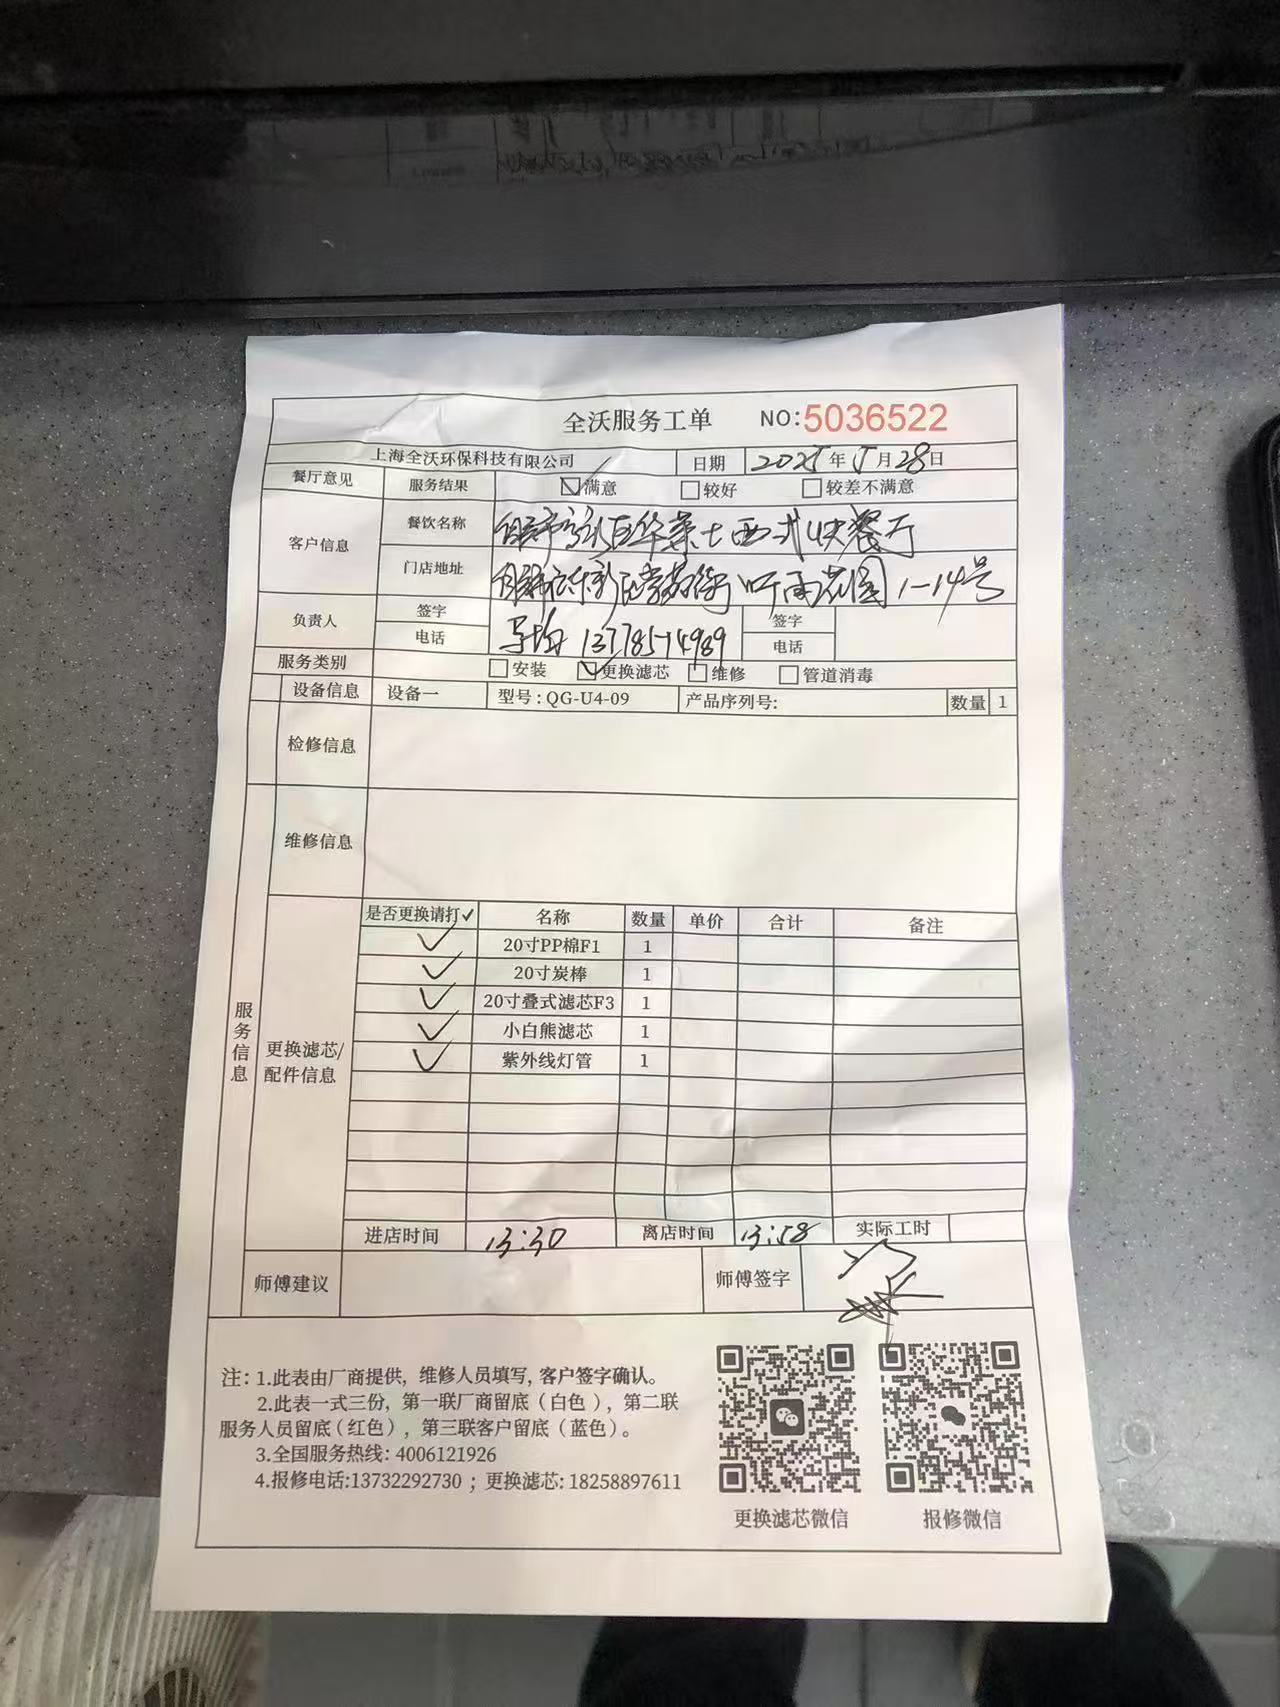 全沃服务工单 NO:5036522
上海全沃环保科技有限公司 日期 2025年5月28日
餐厅意见 服务结果 满意 较好 较差不满意
客户信息 餐饮名称 华莱士西式快餐厅
门店地址 街听雨花园1-14号
负责人 签字 签字
电话 13778514989 电话
服务类别 安装 更换滤芯 维修 管道消毒
设备信息 设备一 型号:QG-U4-09 产品序列号: 数量 1
检修信息
维修信息
服务信息
更换滤芯/
配件信息
是否更换请打✓ 名称 数量 单价 合计 备注
✓ 20寸PP棉F1 1
✓ 20寸炭棒 1
✓ 20寸叠式滤芯F3 1
✓ 小白熊滤芯 1
✓ 紫外线灯管 1
进店时间 13:30 离店时间 13:58 实际工时
师傅建议 师傅签字
注:1.此表由厂商提供,维修人员填写,客户签字确认。
2.此表一式三份,第一联厂商留底(白色),第二联
服务人员留底(红色),第三联客户留底(蓝色)。
3.全国服务热线:4006121926
4.报修电话:13732292730;更换滤芯:18258897611
更换滤芯微信 报修微信